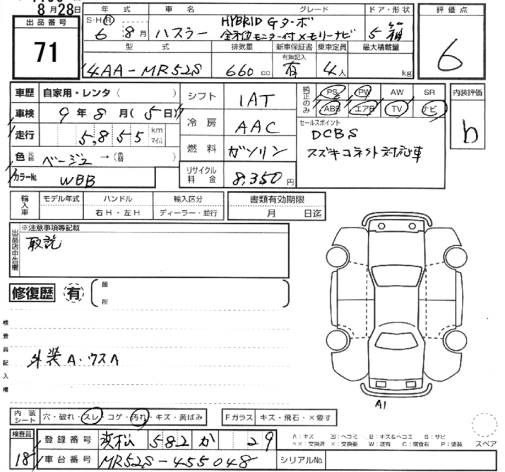 8月28日
出品番号
71
年式 車名 グレード ドア・形状
S・H・R 6年 8月 ハスラー HYBRID Gターボ 5 箱
全方位モニター付メモリーナビ
型式 排気量 新車保証書 乗車定員 最大積載量
有無記入
4AA-MR52S 660cc 有 4人 kg
評価点
6
車歴 自家用・レンタ( )
車検 9年 8月(5日)
走行 5,855 km マイル
色 元色 ベージュ →( 色替 )
カラーNo. WBB
シフト 1AT
冷房 AAC
燃料 ガソリン
リサイクル料金 8,350円
純正のみ PS PW AW SR
ABS エアB TV ナビ
セールスポイント
DCBS
スズキコネクト対応車
内装評価
b
輸入車 モデル年式 ハンドル 輸入区分
年 右H・左H ディーラー・並行
書類有効期限
月 日迄
出品店申告欄
※注意事項等記載
取説
修復歴 有 箇所
検査員記入欄
外装A・ウスA
A1
内装シート 穴・破れ・スレ・コゲ・汚れ・キズ・黄ばみ
Fガラス キズ・飛石・×要す
スペア
検査員
18
登録番号 浜松 582 か 29
車台番号 MR52S-455048
シリアルNo.